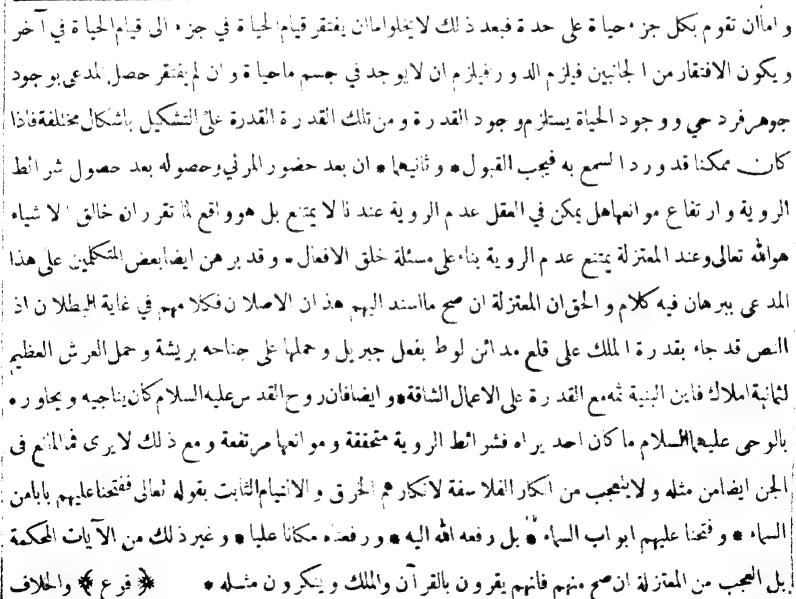 و اما ان تقوم بكل جزء حياة على حدة فبعد ذلك لا يخلو اما ان يفتقر قيام الحياة في جزء الى قيام الحياة في آخر
و يكون الافتقار من الجانبين فيلزم الدور فيلزم ان لا يوجد في جسم ما حياة و ان لم يفتقر حصل المدعى بوجود
جوهر فرد حي و وجود الحياة يستلزم وجود القدرة و من تلك القدرة القدرة على التشكيل باشكال مختلفة فاذا
كان ممكنا قد ورد السمع به فيجب القبول * و ثانيهما * ان بعد حضور المرئي وحصوله بعد حصول شرائط
الروية و ارتفاع موانعها هل يمكن في العقل عدم الروية عندنا لا يمتنع بل هو واقع لما تقرر ان خالق الاشياء
هو الله تعالى وعند المعتزلة يمتنع عدم الروية بناء على مسئلة خلق الافعال * و قد برهن ايضا بعض المتكلمين على هذا
المدعى ببرهان فيه كلام و الحق ان المعتزلة ان صح ما اسند اليهم هذان الاصلان فكلامهم في غاية البطلان اذ
النص قد جاء بقدرة الملك على قلع مدائن لوط بفعل جبريل و حملها على جناحه بريشة و حمل العرش العظيم
لثمانية املاك فاين البنية ثمه مع القدرة على الاعمال الشاقة * و ايضا فان روح القدس عليه السلام كان يناجيه و يحاوره
بالوحى عليهما السلام ما كان احد يراه فشرائط الروية متحققة و موانعها مرتفعة و مع ذلك لا يرى فما المانع فى
الجن ايضا من مثله و لا يتعجب من انكار الفلاسفة لانكارهم الخرق و الالتيام الثابت بقوله تعالى ففتحنا عليهم بابا من
السماء * و فتحنا عليهم ابواب السماء * بل رفعه الله اليه * و رفعناه مكانا عليا * و غير ذلك من الآيات المحكمة
بل العجب من المعتزلة ان صح منهم فانهم يقرون بالقرآن والملك و ينكرون مثله * ﴿ فرع ﴾ والخلاف